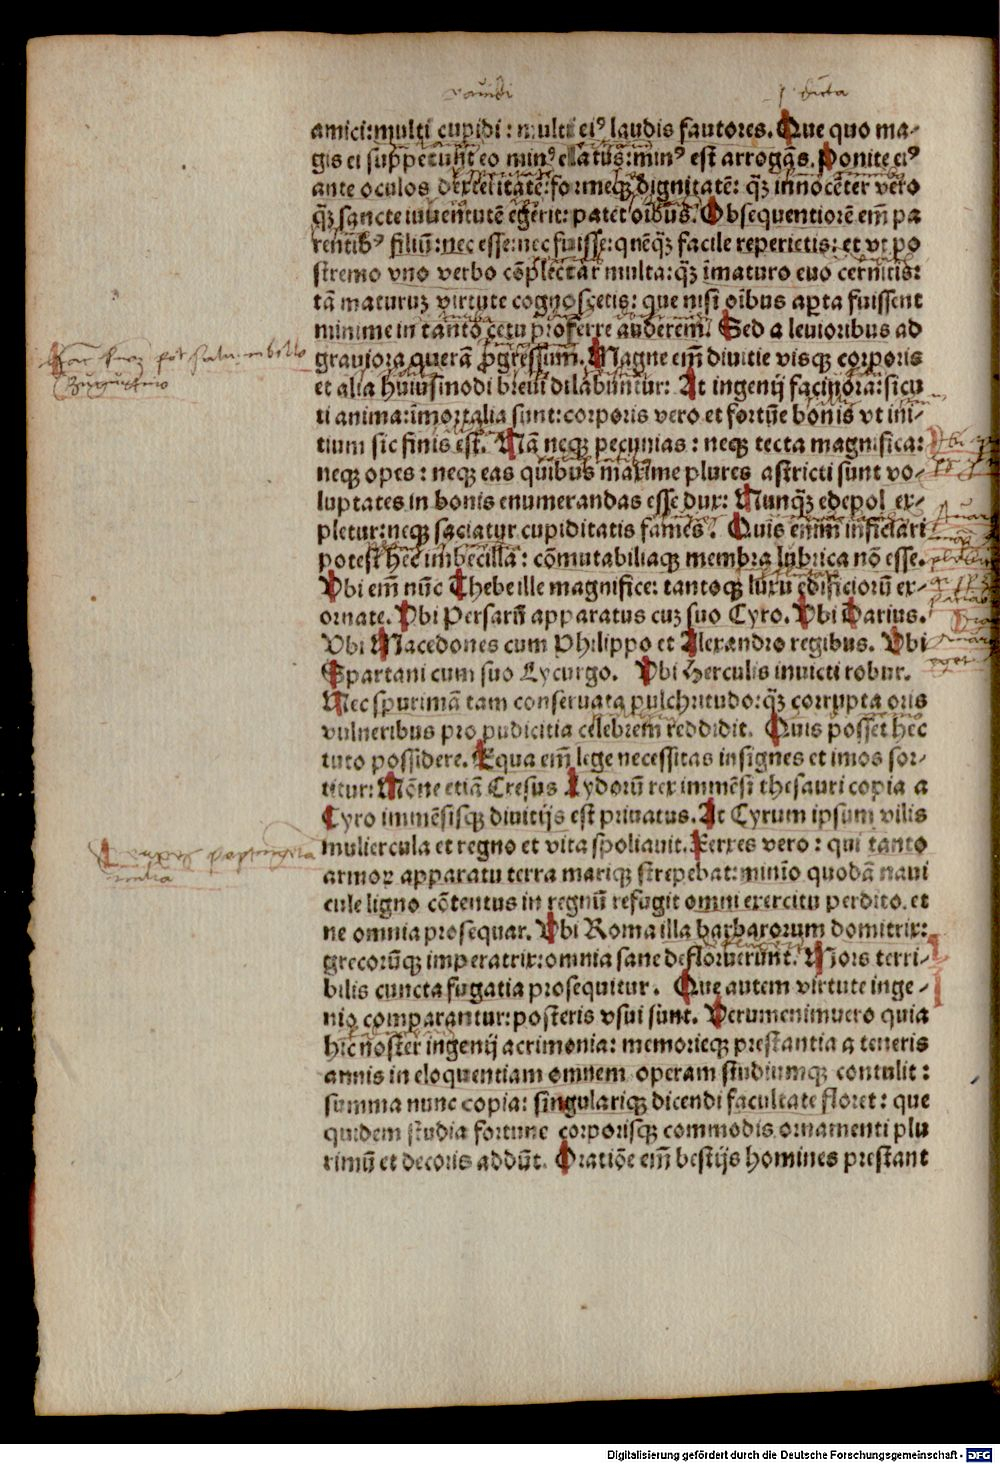 amici: multi cupidi: multi eiꝰ laudis fautores. Que quo ma-
gis ei suppetunt eo minꝰ elatus: minꝰ est arrogãs. Ponite eiꝰ
ante oculos formeqꝫ dignitatẽ: qꝫ̃ innocẽter vero
qꝫ̃ sancte iuuentutẽ egerit: patet oĩbus. Obsequentiorẽ em̃ pa
rentibꝰ filiũ: nec esse: nec fuisse: quẽqꝫ̃ facile reperietis: et vt po
stremo vno verbo cõplectar multa: qꝫ̃ ĩmaturo euo cernitis:
tã maturuꝫ virtute cognoscetis: que nisi oĩbus aꝑta fuissent
minime in tanto cetu proferre auderem. Sed a leuioribus ad
grauiora querã ꝓgressum. Magne em̃ diuitie visqꝫ corporis
et alia huiusmodi breui dilabuntur: At ingenij facinora: sicu
ti anima: ĩmortalia sunt: corporis vero et fortũe bonis vt ini-
tium sic finis est. Nã neqꝫ pecunias: neqꝫ tecta magnifica:
neqꝫ opes: neqꝫ eas quibus maxime plures astricti sunt vo-
luptates in bonis enumerandas esse dux: Nunqꝫ̃ edepol ex-
pletur: neqꝫ saciatur cupiditatis fames. Quis enim inficiari
potest hec imbecilla: cõmutabiliaqꝫ membra lubrica nõ esse.
Vbi em̃ nũc Thebe ille magnifice: tantoqꝫ luxu edificiorũ ex-
ornate. Vbi Persarũ apparatus cuꝫ suo Cyro. Vbi Darius.
Vbi Macedones cum Philippo et Alexandro regibus. Vbi
Spartani cum suo Lycurgo. Vbi Herculis inuicti robur.
Nec spurimã tam conseruata pulchritudo: qꝫ̃ corrupta oris
vulneribus pro pudicitia celebrem reddidit. Quis posset hec
tuto possidere. Equa em̃ lege necessitas insignes et imos sor-
titur: Nõne etiã Cresus Lydorũ rex immẽsi thesauri copia a
Cyro immẽsisqꝫ diuitijs est priuatus. At Cyrum ipsum vilis
muliercula et regno et vita spoliauit. Xerxes vero: qui tanto
armoꝝ apparatu terra mariqꝫ strepebat: minĩo quodã naui
cule ligno cõtentus in regnũ refugit omni exercitu perdito. et
ne omnia prosequar. Vbi Roma illa barbarorum domitrix:
grecorũqꝫ imperatrix: omnia sane defloruerunt. Mors terri-
bilis cuncta fugatia prosequitur. Que autem virtute inge-
nio comparantur: posteris vsui sunt. Verumenimuero quia
hic noster ingenij acrimonia: memorieqꝫ prestantia a teneris
annis in eloquentiam omnem operam studiumqꝫ contulit:
summa nunc copia: singulariqꝫ dicendi facultate floret: que
quidem studia fortune corporisqꝫ commodis ornamenti plu
rimũ et decoris addũt. Oratiõe em̃ bestijs homines prestant
Digitalisierung gefördert durch die Deutsche Forschungsgemeinschaft - DFG